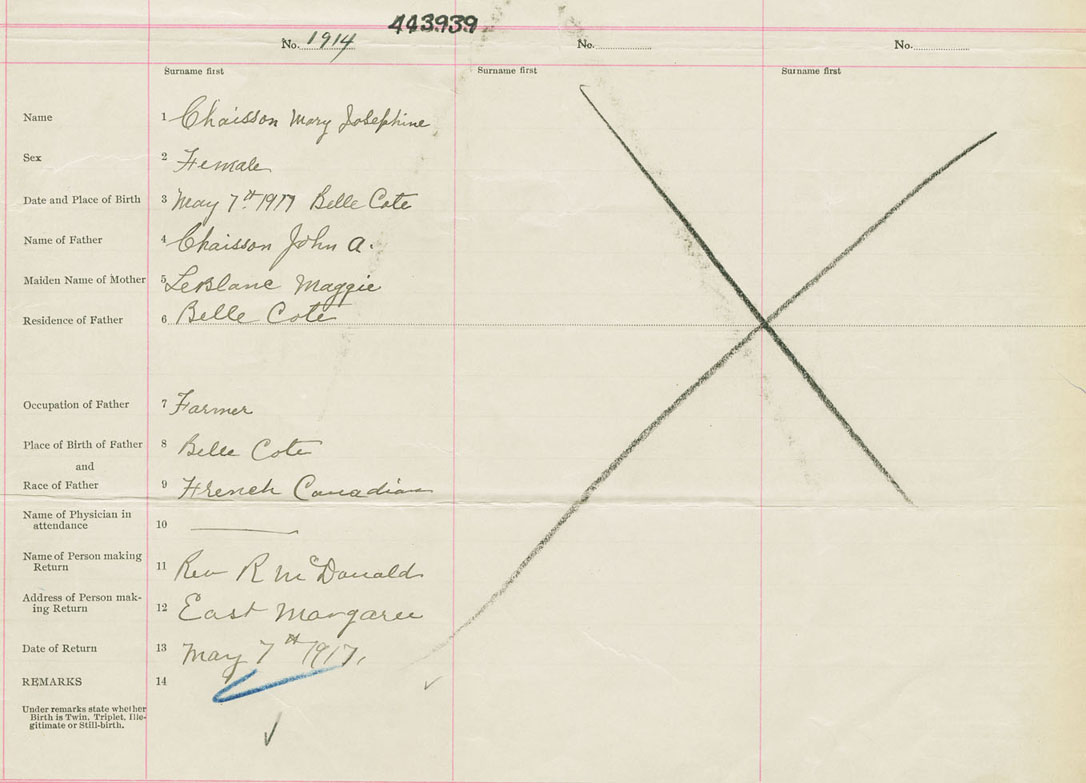 443939
No. 1914 No. No.
Surname first Surname first Surname first
Name 1 Chaisson Mary Josephine
Sex 2 Female
Date and Place of Birth 3 May 7th 1917 Belle Cote
Name of Father 4 Chaisson John A.
Maiden Name of Mother 5 LeBlanc Maggie
Residence of Father 6 Belle Cote
Occupation of Father 7 Farmer
Place of Birth of Father 8 Belle Cote
and
Race of Father 9 French Canadian
Name of Physician in
attendance 10
Name of Person making
Return 11 Rev R McDonald
Address of Person mak-
ing Return 12 East Margaree
Date of Return 13 May 7th 1917,
REMARKS 14
Under remarks state whether
Birth is Twin, Triplet, Ille-
gitimate or Still-birth.